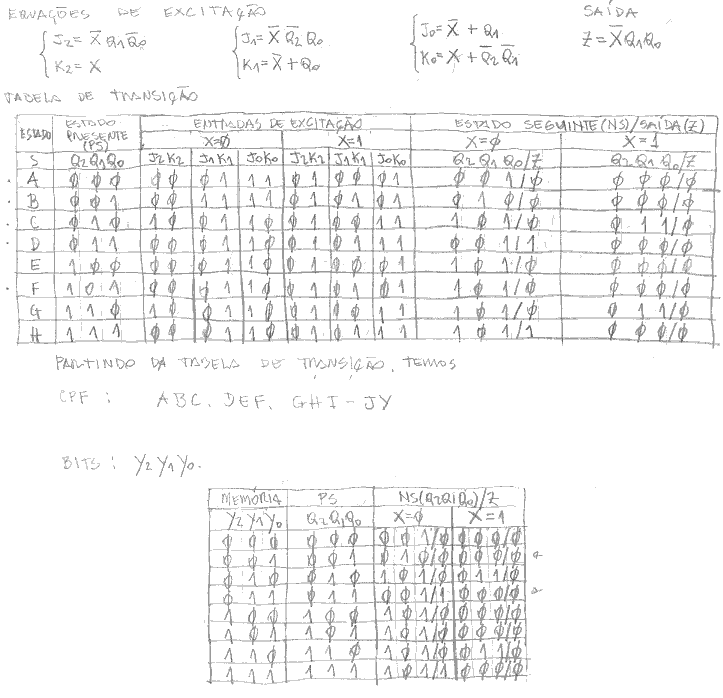 EQUAÇÕES DE EXCITAÇÃO
SAÍDA
J₂ = X̅ Q₁ Q̅₀
K₂ = X
J₁ = X̅ Q̅₂ Q₀
K₁ = X̅ + Q₀
J₀ = X̅ + Q₁
K₀ = X + Q̅₂ Q̅₁
Z = X̅ Q₁ Q₀
TABELA DE TRANSIÇÃO
ESTADO ESTADO PRESENTE (PS) ENTRADAS DE EXCITAÇÃO ESTADO SEGUINTE (NS)/SAÍDA (Z)
X=φ X=1 X=φ X=1
S Q₂Q₁Q₀ J₂K₂ J₁K₁ J₀K₀ J₂K₂ J₁K₁ J₀K₀ Q₂ Q₁ Q₀/Z Q₂ Q₁ Q₀/Z
A φ φ φ φφ φ1 11 φ1 φφ φ1 φ φ 1/φ φ φ φ/φ
B φ φ 1 φφ 11 11 φ1 φ1 φ1 φ 1 φ/φ φ φ φ/φ
C φ 1 φ 1φ φ1 1φ φ1 φφ 11 1 φ 1/φ φ 1 1/φ
D φ 1 1 φφ φ1 1φ φ1 φ1 11 φ φ 1/1 φ φ φ/φ
E 1 φ φ φφ φ1 1φ φ1 φφ φ1 1 φ 1/φ φ φ φ/φ
F 1 φ 1 φφ φ1 1φ φ1 φ1 φ1 1 φ 1/φ φ φ φ/φ
G 1 1 φ 1φ φ1 1φ φ1 φφ 11 1 φ 1/φ φ 1 1/φ
H 1 1 1 φφ φ1 1φ φ1 φ1 11 1 φ 1/1 φ φ φ/φ
PARTINDO DA TABELA DE TRANSIÇÃO, TEMOS
CPF : ABC. DEF. GHI - JY
BITS : Y₂ Y₁ Y₀.
MEMÓRIA PS NS(Q₂Q₁Q₀)/Z
Y₂ Y₁ Y₀ Q₂ Q₁ Q₀ X=φ X=1
φ φ φ φ φ φ φ φ 1/φ φ φ φ/φ
φ φ 1 φ φ 1 φ 1 φ/φ φ φ φ/φ
φ 1 φ φ 1 φ 1 φ 1/φ φ 1 1/φ
φ 1 1 φ 1 1 φ φ 1/1 φ φ φ/φ
1 φ φ 1 φ φ 1 φ 1/φ φ φ φ/φ
1 φ 1 1 φ 1 1 φ 1/φ φ φ φ/φ
1 1 φ 1 1 φ 1 φ 1/φ φ 1 1/φ
1 1 1 1 1 1 1 φ 1/1 φ φ φ/φ